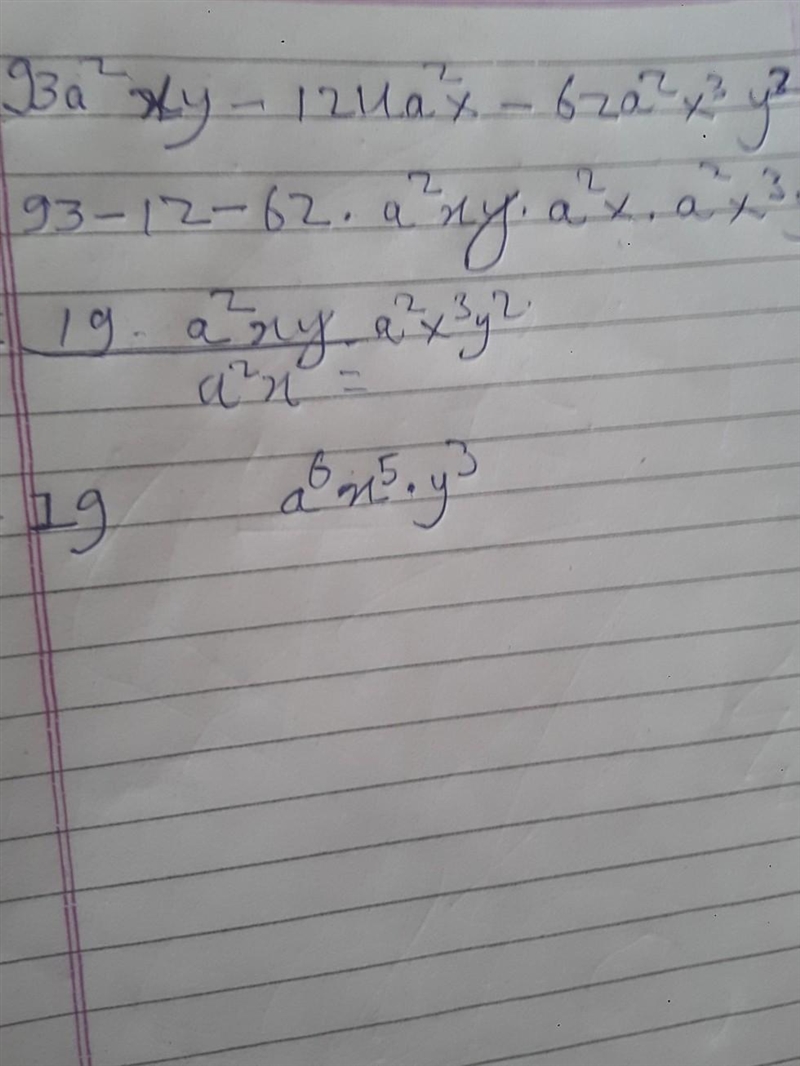 93a² xy - 124a²x - 62a²x³ y²
93-12-62. a²xy. a²x. a²x³
19. a²xy a²x³y²
a²x =
19 a⁶x⁵.y³